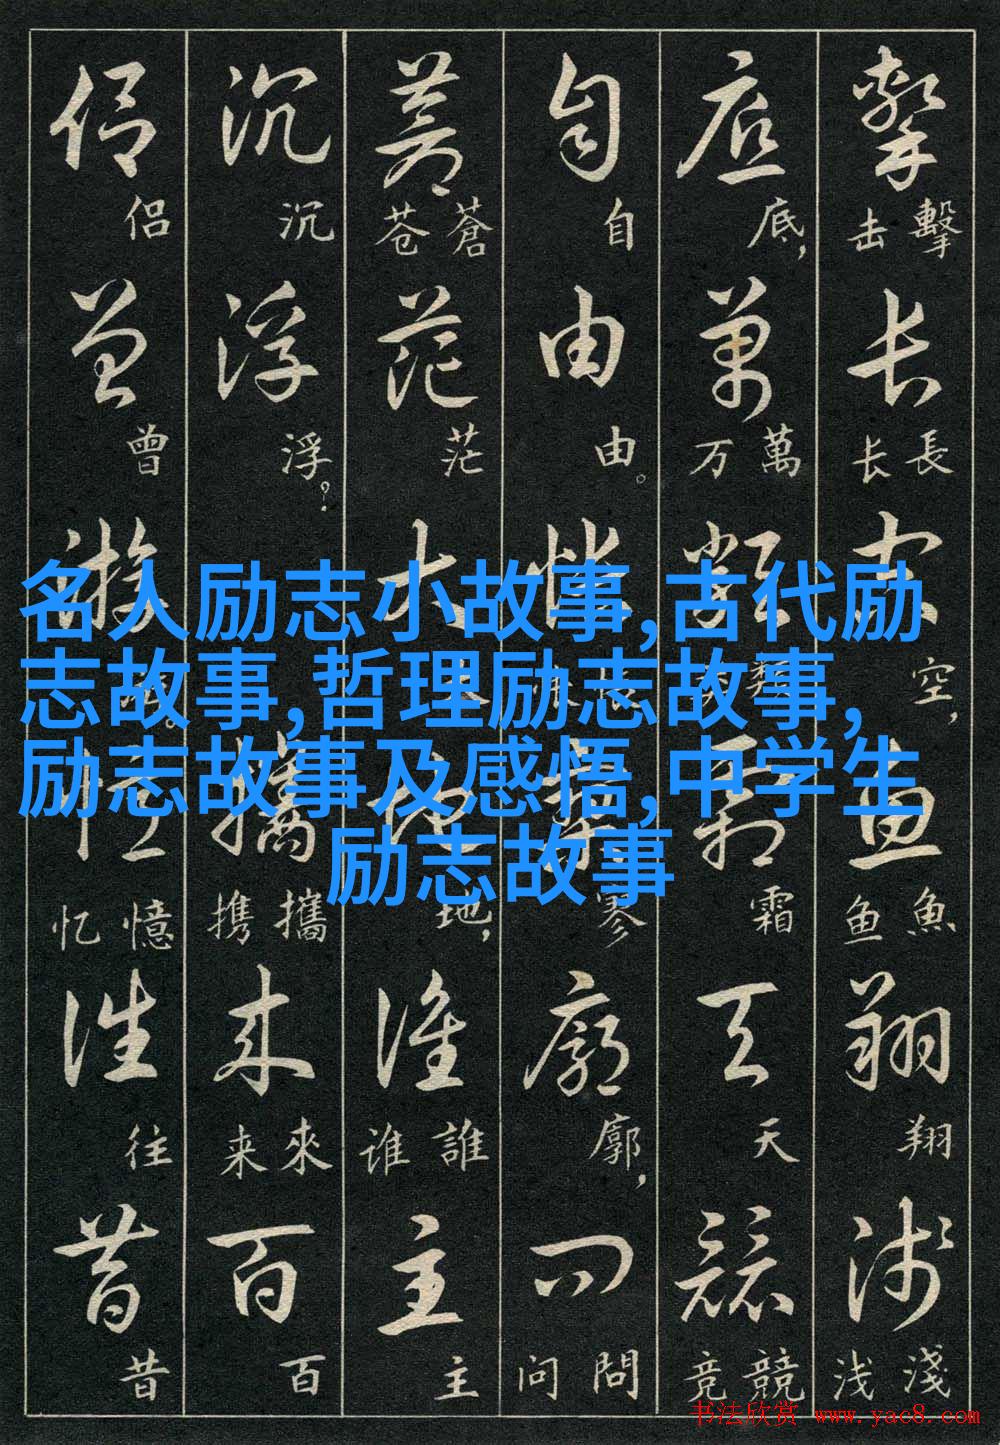 名人励志小故事,古代励
志故事,哲理励志故事,
励志故事及感悟,中学生
励志故事
擊 击擊 长 长長 空 空, 鱼 鱼魚 翔 翔 浅 浅淺
底 底, 萬 万萬 類 類 霜 霜 天 天 競 竞競
自 自 由 由。 悵 寥 寥 廓 廓, 问 问問
蒼 苍蒼 茫 茫 大 大 地 地, 誰 谁誰 主 主
沉 沉 浮 浮? 攜 携攜 来 来來 百 百
侣 侣 曾 曾 游 憶 忆憶 往 往 昔 昔
书法欣赏 www.yac8.com